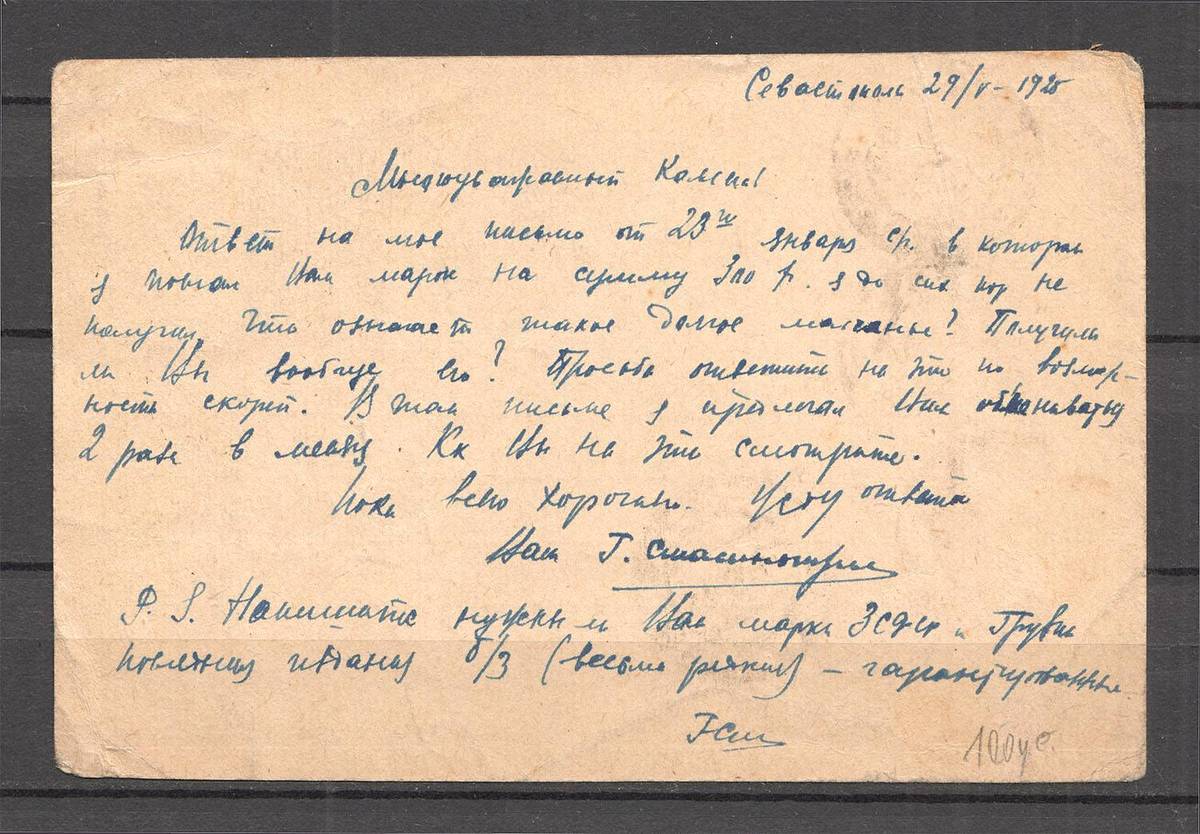 Севастополь 29/V - 1925
Многоуважаемый
Ответ на мое письмо от 23го января с/г. в котором
я послал Вам марок на сумму 300 f. я до сих пор не
получил. Что означает такое долгое молчанье? Получили
ли Вы вообще его? Просьба ответить на это по возмож-
ности скорей. В том письме я предлагал Вам обмениваться
2 раза в месяц. Как Вы на это смотрите.
Пока всего хорошего. Жду ответа
Ваш Г.
P. S. Напишите нужны ли Вам марки ЗСФСР и Грузии
последняя б/з (весьма редкия) – гарантированные.
100 у.е.